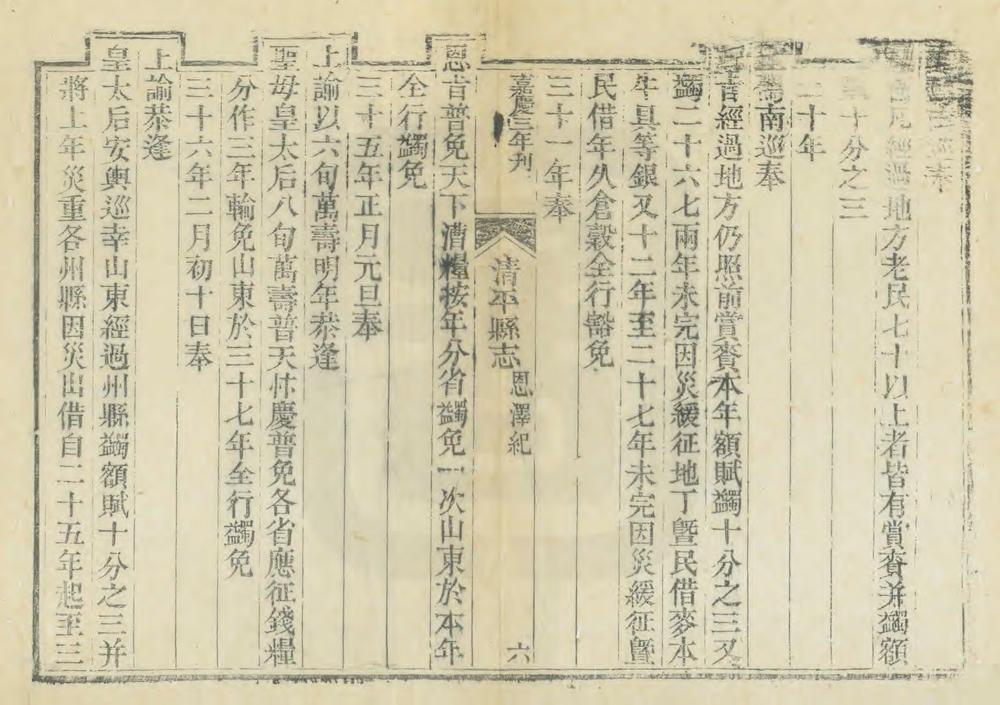 巡奉
經過地方老民七十以上者皆有賞賚并蠲額
十分之三
二十年
南巡奉
旨經過地方仍照前賞賚本年額賦蠲十分之三又
蠲二十六七兩年未完因災緩征地丁曁民借麥本
牛具等銀又十二年至二十七年未完因災緩征曁
民借年久倉穀全行豁免
三十一年奉
嘉慶三年刊
清平縣志
恩澤紀
六
恩旨普免天下漕糧按年分省蠲免一次山東於本年
全行蠲免
三十五年正月元旦奉
上諭以六旬萬壽明年恭逢
聖母皇太后八旬萬壽普天忭慶普免各省應征錢糧
分作三年輪免山東於三十七年全行蠲免
三十六年二月初十日奉
上諭恭逢
皇太后安輿巡幸山東經過州縣蠲額賦十分之三并
將上年災重各州縣因災出借自二十五年起至三